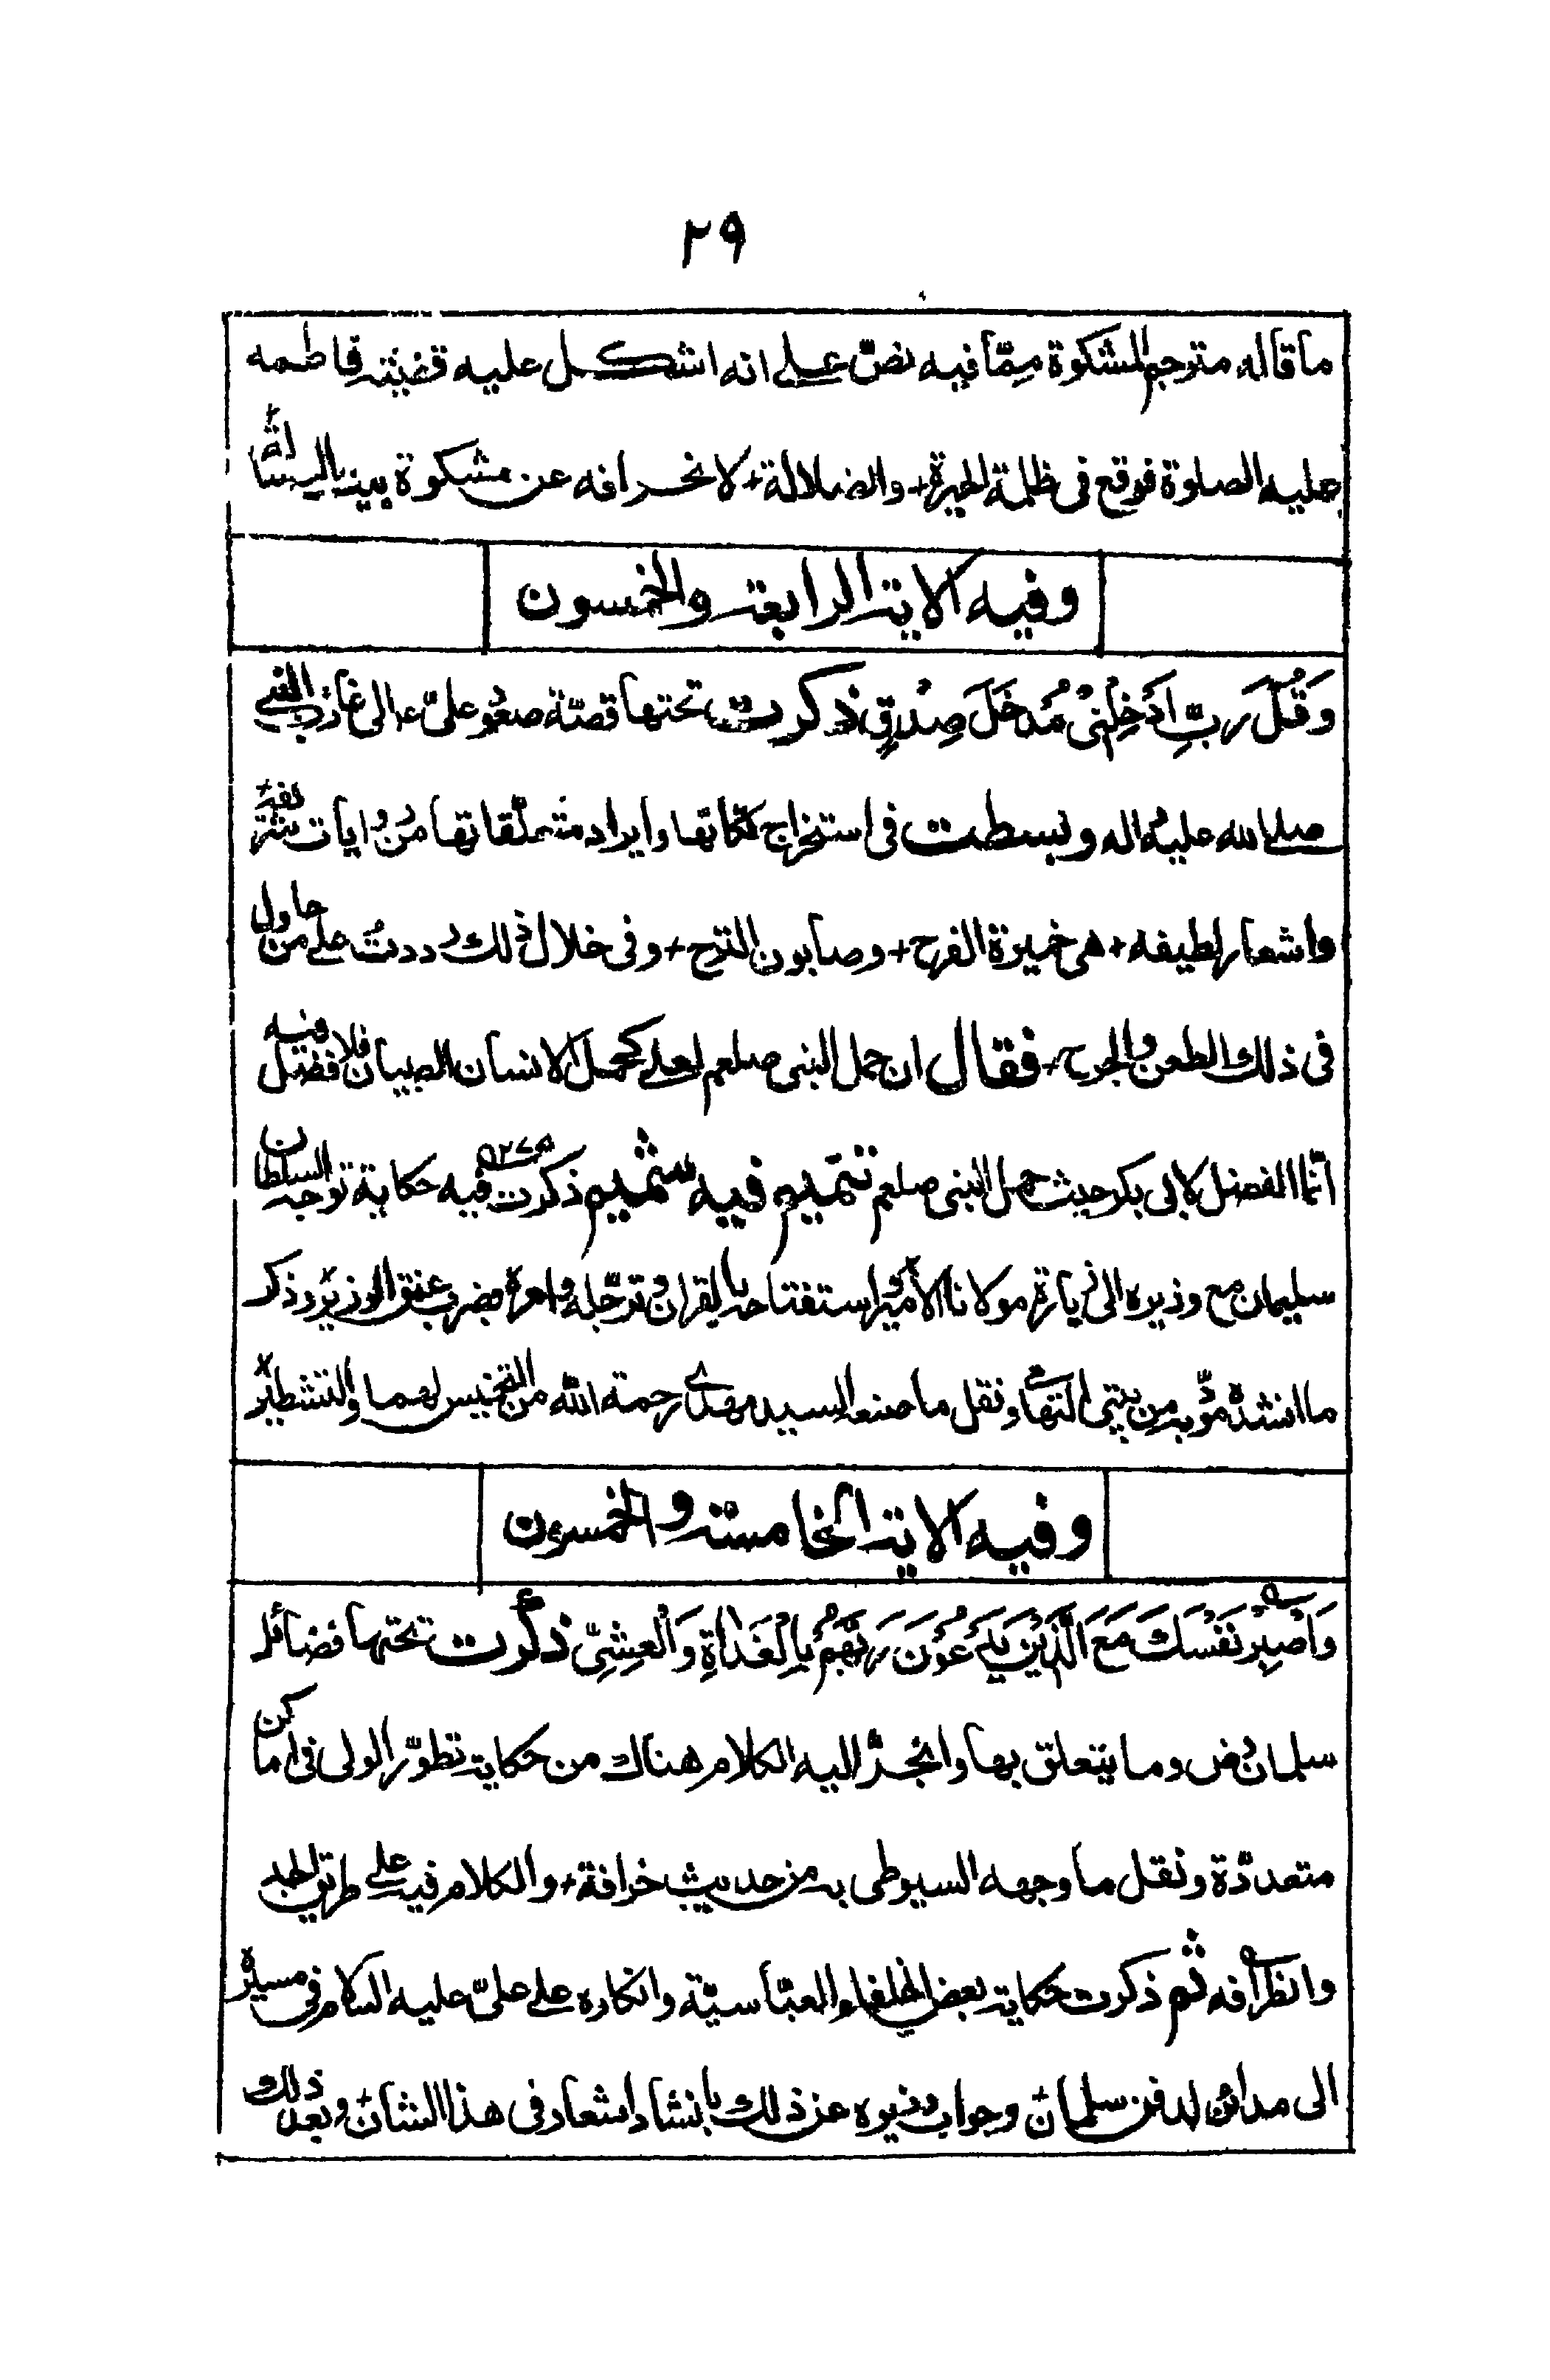 ٢٩
ما قاله مترجم المشكوة ممّا فيه نصّ على انه اشكل عليه قضيّة فاطمه
عليها الصلوة فوقع فى ظلمة الحيرة + والضلالة + لانحرافه عن مشكوة بيت
وفيه الاية الرابعة والخمسون
وَقُلْ رَبِّ اَدْخِلْنِىْ مُدْخَلَ صِدْقٍ ذكرت تحتها قصّة صعود علىّ ع الى غارب النبى
صلى الله عليه واله وبسطت فى استخراج نكاتها وايراد متعلّقاتها من روايات
واشعار لطيفه + هى خميرة الفرح + وصابون الترح + وفى خلال ذلك رددت على من حاول
فى ذلك الطعن والجرح + فقال ان حمل النبى صلعم لعلى كحمل الانسان الصبيان فلا فضل فيه
انّما الفضل لابى بكر حيث حمل النبى صلعم تتميم فيه تثميم ذكرت فيه حكاية توجه السلطان
سليمان مع وزيره الى زيارة مولانا الامير واستفتاحه بالقران وترجّله وامره بضرب عنق الوزير وذكر
ما انشده مؤدّبه من بيتى التهامى ونقل ما صنعه السيد مهدى رحمة الله من التخميس لهما والتشطير
وفيه الاية الخامسة والخمسون
وَاصْبِرْ نَفْسَكَ مَعَ الَّذِيْنَ يَدْعُوْنَ رَبَّهُمْ بِالْغَدَاةِ وَالْعَشِىِّ ذكرت تحتها فضائل
سلمان رض وما يتعلق بها وانجرّ اليه الكلام هناك من حكاية تطوّر الولى فى اماكن
متعددّة ونقل ما وجهه السيوطى به من حديث خرافة + والكلام فيه على طريق الجد
والظرافه ثم ذكرت حكاية بعض الخلفاء العبّاسيّة وانكاره على علىّ عليه السلام فى مسيره
الى مدائن لدفن سلمان + وجواب وزيره عن ذلك بانشاد اشعار فى هذا الشان + وبعد ذلك